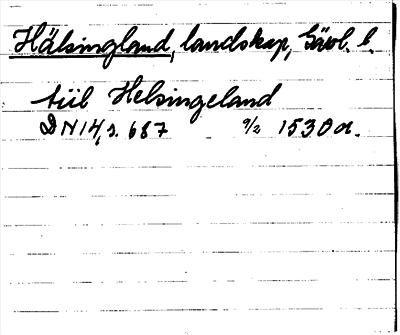 Hälsingland, landskap, Gävl. l.
tiil Helsingeland
DN 14, s. 687 9/2 1530 a.